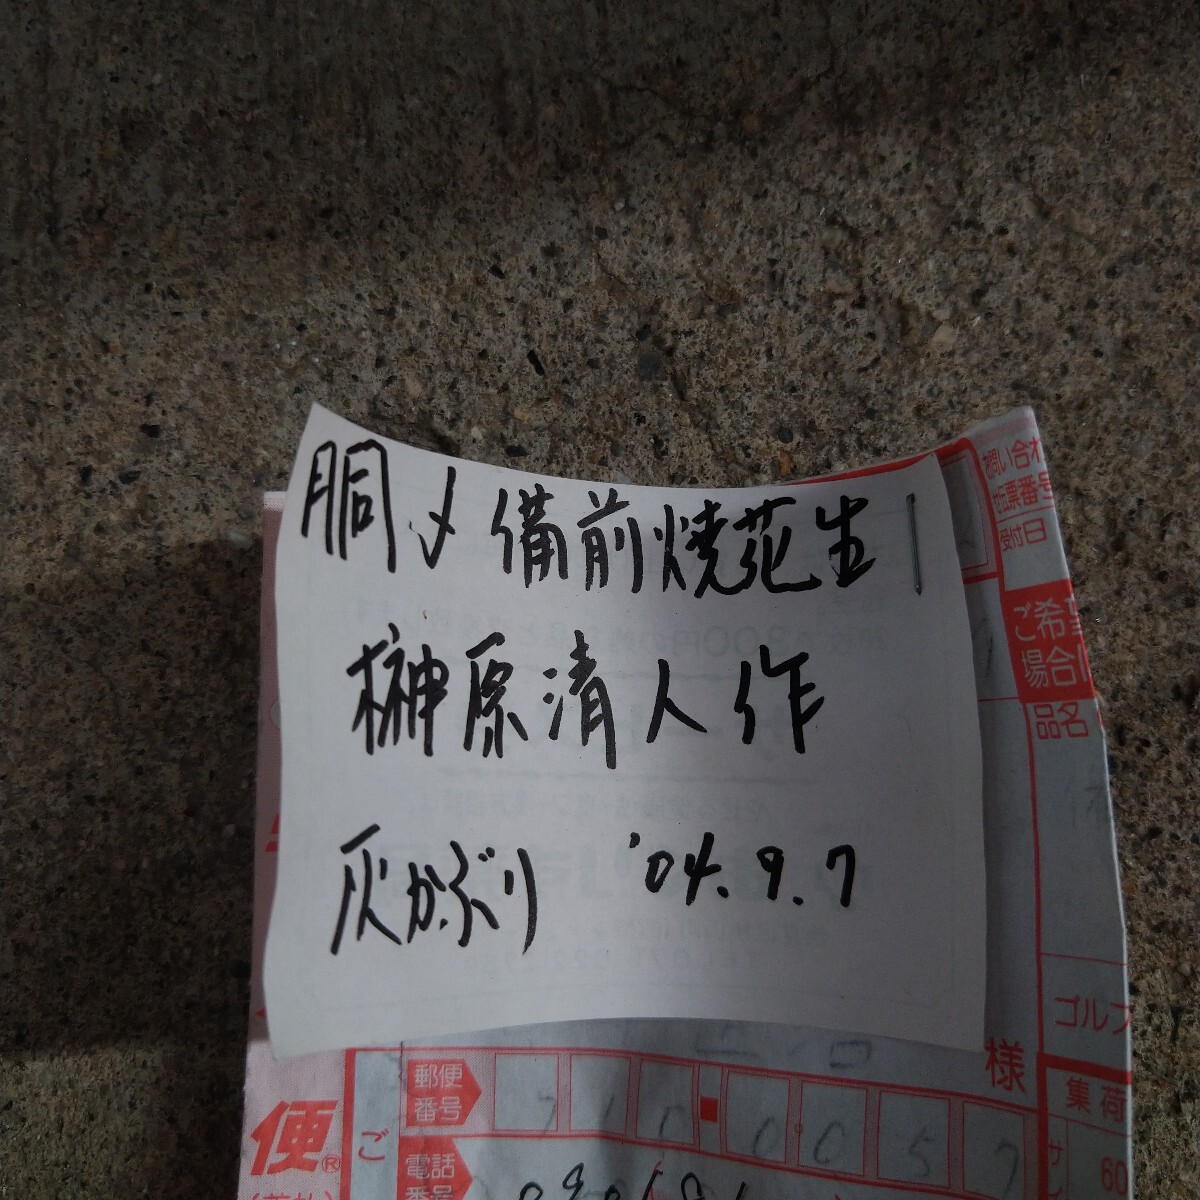 胴〆備前焼花生
榊原清人作
灰かぶり '04.9.7
お問い合
伝票番号
受付日
ご希望
場合
品名
ゴルフ
様
集荷
郵便
番号
便®
ご
電話
番号
サ
60